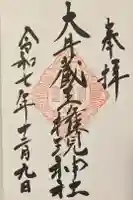 奉拝
大井蔵王権現神社
令和七年十二月九日